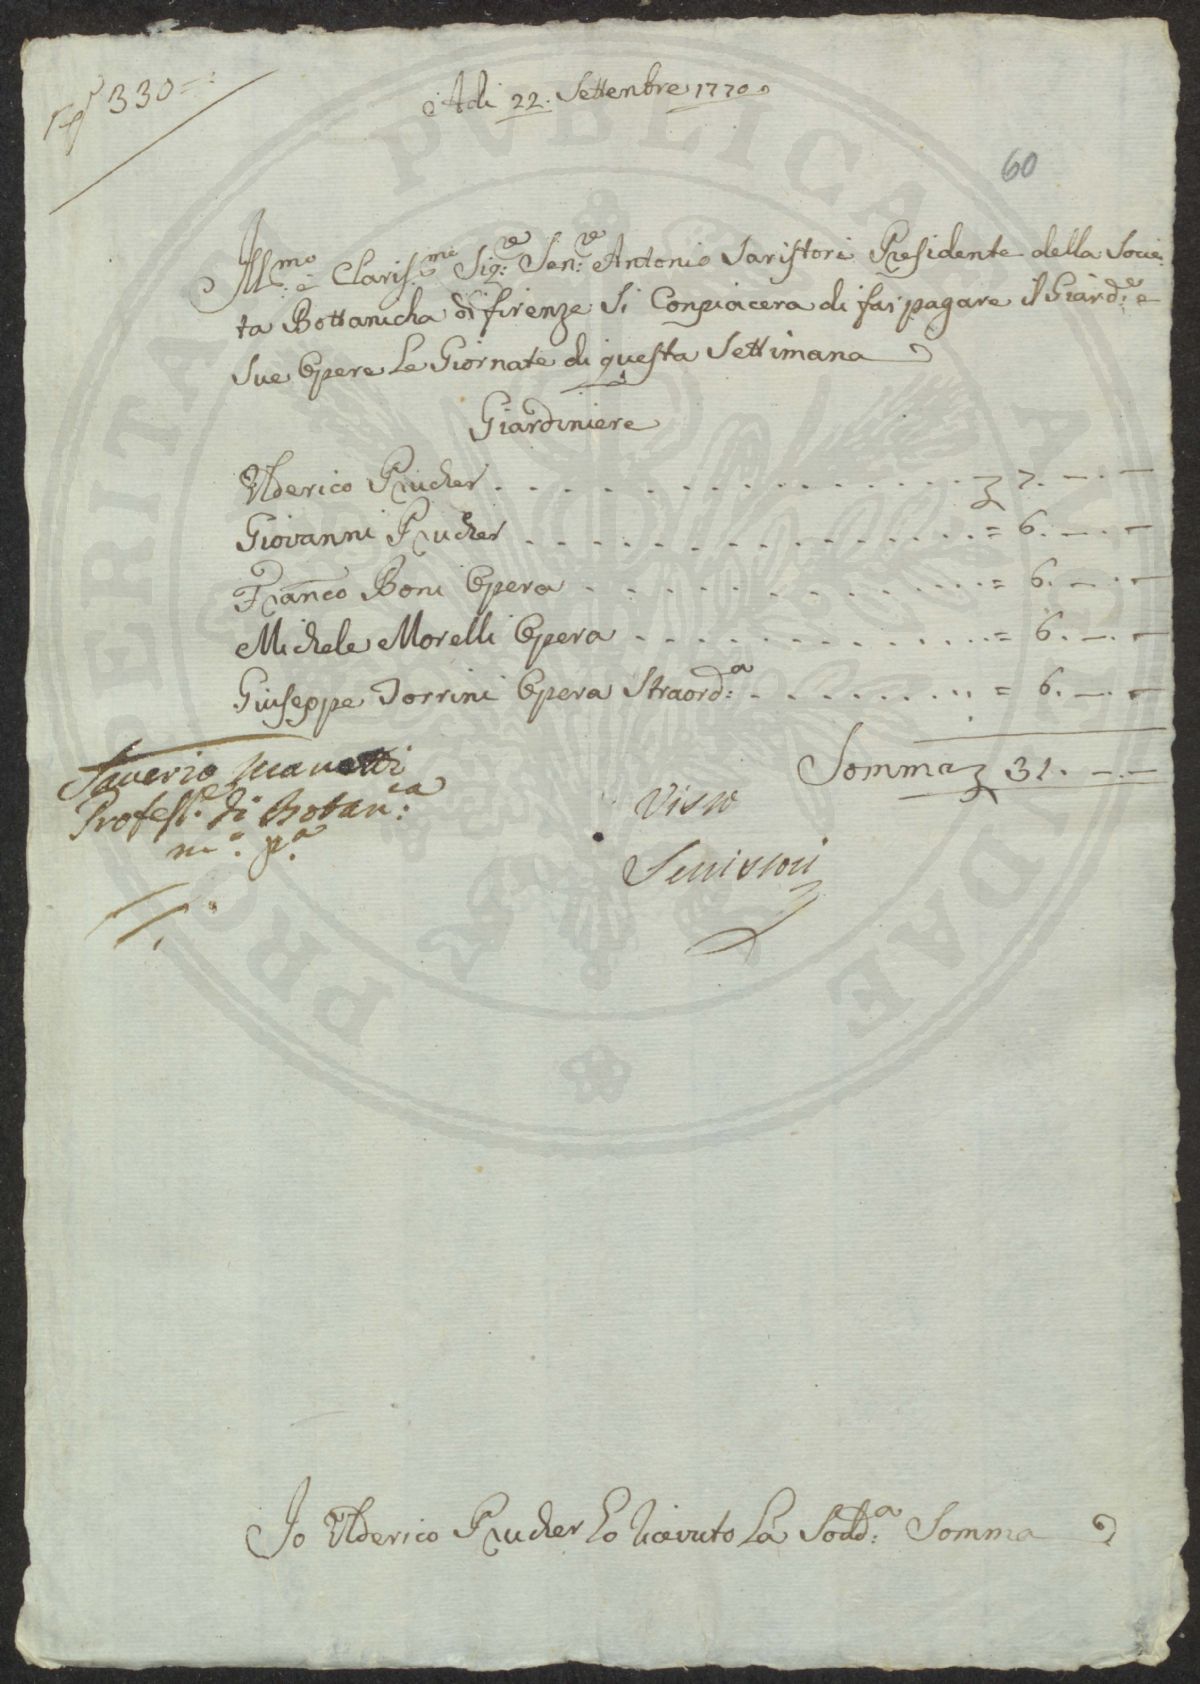 330
Adi 22. Settenbre 1770
60
Ill.mo e Claris.mo Sig.re Sen.re Antonio Saristori Presidente della Socie:
ta Bottanicha di firenze Si Conpiacera di far pagare il Giard.re e
Sue Opere Le Giornate di questa Settimana
Giardiniere
Ulderico Prucher . . . . . . . . . . . . . . . . 7. — . —
Giovanni Prucher . . . . . . . . . . . . . . = 6. — . —
Franco Boni Opera . . . . . . . . . . . . = 6. — . —
Michele Morelli Opera . . . . . . . . . . . = 6. — . —
Giuseppe Torrini Opera Straord:a . . . . . . . . = 6. — . —
Somma 31. — . —
Saverio Manetti
Profess.e di Botan:ca
m.o p.a
Visto
Serristori
Io Ulderico Prucher ho riceuto La Sodd:a Somma
PROSPERITATI PVBLICAE AVGENDAE